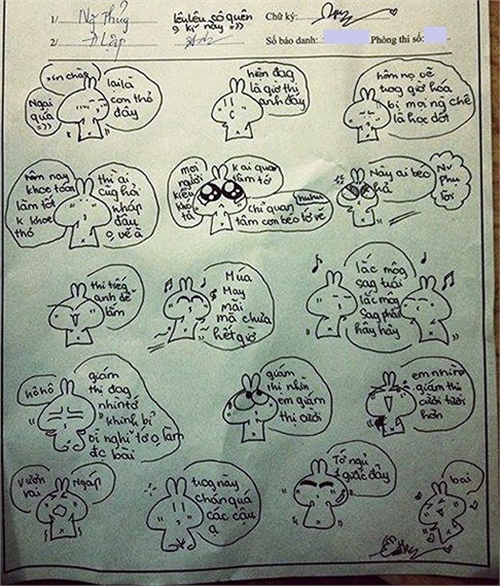 1/ Ng Thủy
2/
lêu lêu số quên
kí này =))
Chữ ký:
Số báo danh:
Phòng thi số:
xin chào
Ngại
quá =))
lại là
con thỏ
đây
hiện đag
là giờ thi
anh đây
hôm nọ vẽ
trog giờ hóa
bị mọi ng chê
là học dốt
hôm nay
khoe toán
làm tốt
k khoe
thỏ
thì ai
cũg hỏi
kháp
đâu
vẽ à
mọi
người
k ai quan
tâm tớ
chỉ quan
tâm con béo lờ vẽ
huhu
Này ai béo
hả
Nv
Phụ
lòi
thi tiếng
anh dễ
lắm
Múa
May
Mãi
mà chưa
hết giờ
lắc môg
sag trái
lắc môg
sag phải
hây hây
hôhô
giám
thị đag
nhìn tớ
khinh bỉ
vì nghĩ tớ làm
đc bài
giám
thị nhìn
em giám
thị cười
em nhìn
giám thị
cười tươi
hơn
vươn
vai
Ngáp
trog này
chán quá
các cậu
ạ
Tớ ngủ
1 giấc đây
bai